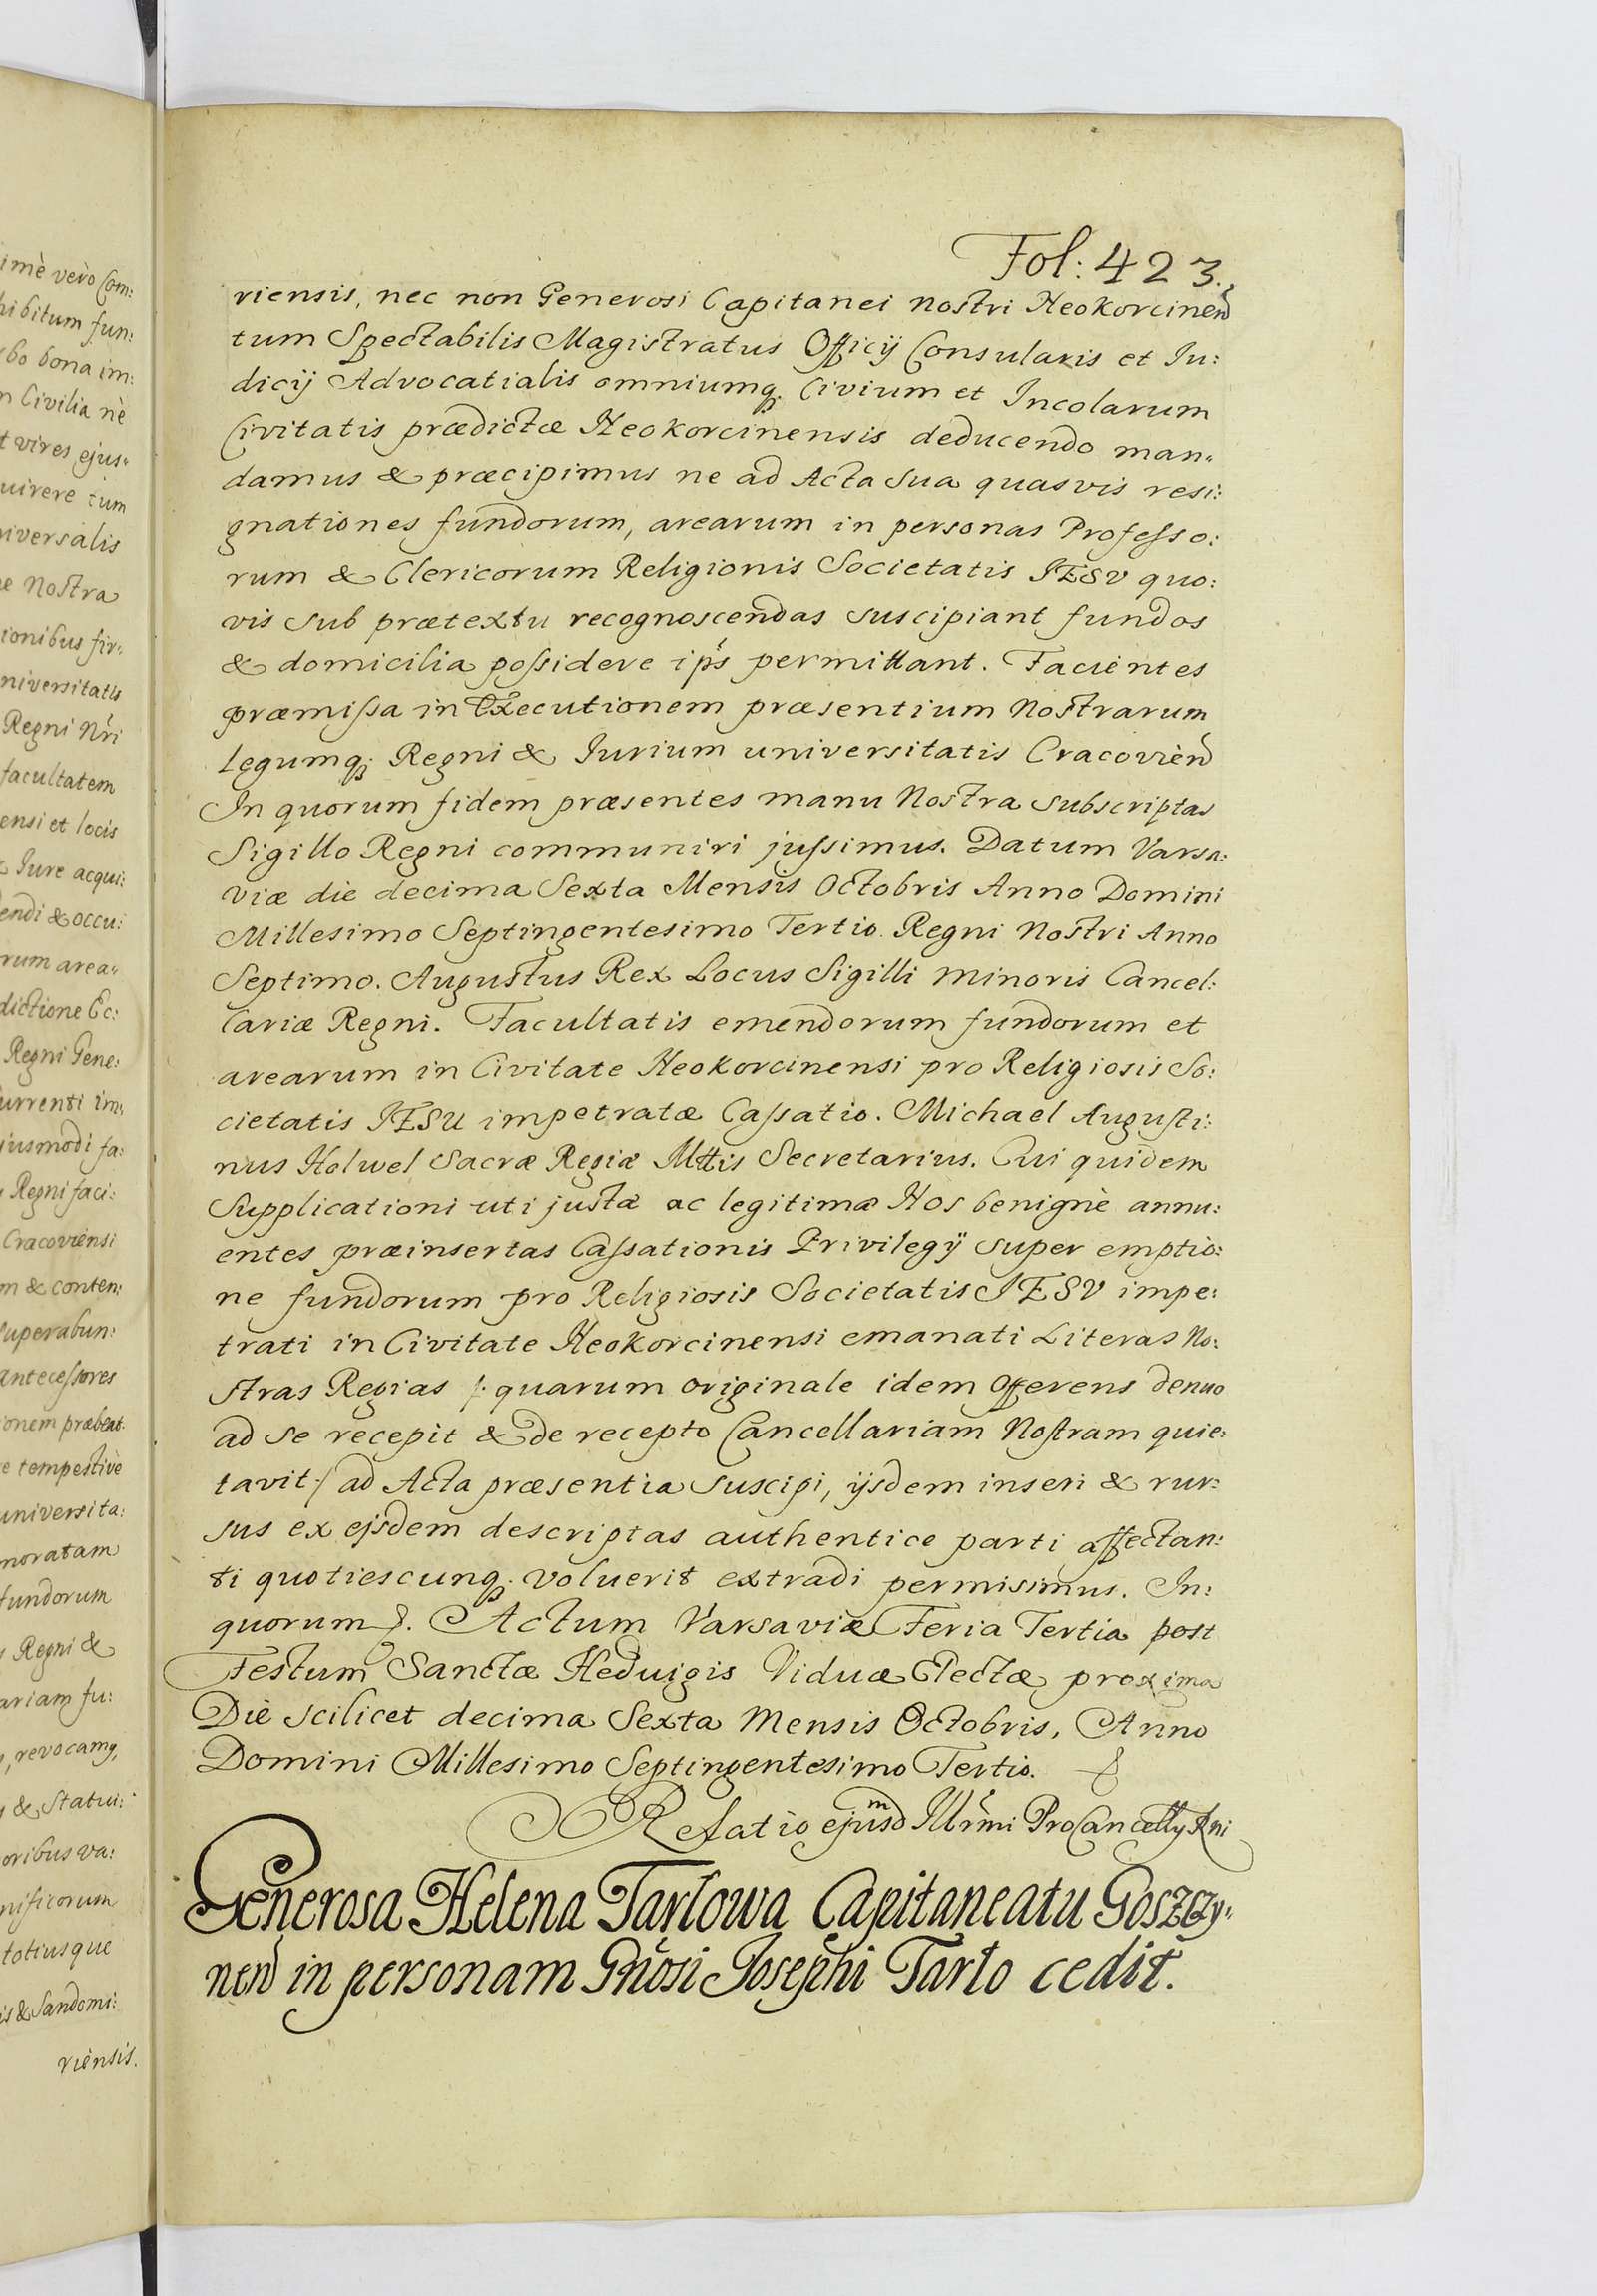 Fol: 423.
riensis, nec non Generosi Capitanei Nostri Neokorcinen
tum Spectabilis Magistratus Officij Consularis et Iu:
dicij Advocatialis omniumq; Civium et Incolarum
Civitatis prædictæ Neokorcinensis deducendo man„
damus & præcipimus ne ad Acta sua quasvis resi:
gnationes fundorum, arearum in personas Professo:
rum & Clericorum Religionis Societatis IESV quo:
vis sub prætextu recognoscendas suscipiant fundos
& domicilia possidere ips permittant. Facientes
præmissa in Executionem præsentium Nostrarum
legumq; Regni & Iurium universitatis Cracovien
In quorum fidem præsentes manu Nostra subscriptas
Sigillo Regni communiri jussimus. Datum Varsa:
viæ die decima Sexta Mensis Octobris Anno Domini
Millesimo Septingentesimo Tertio Regni Nostri Anno
Septimo. Augustus Rex Locus Sigilli Minoris Cancel:
lariæ Regni. Facultatis emendorum fundorum et
arearum in Civitate Neokorcinensi pro Religiosis So:
cietatis IESU impetratæ Cassatio. Michael Augusti:
nus Holwel Sacræ Regiæ Mttis Secretarius. Cui quidem
Supplicationi uti justæ ac legitimæ Nos benignè annu:
entes præinsertas Cassationis Privilegij super emptio:
ne fundorum pro Religiosis Societatis IESV impe:
trati in Civitate Neokorcinensi emanati Literas No:
stras Regias /: quarum originale idem Offerens denuo
ad se recepit & de recepto Cancellariam Nostram quie:
tavit :/ ad Acta præsentia suscipi, ijsdem inseri & rur:
sus ex ejsdem descriptas authentice parti affectan:
ti quotiescunq; voluerit extradi permisimus. In:
quorum &. Actum Varsaviæ Feria Tertia post
Festum Sanctæ Heduigis Viduæ Electæ proxima
Die scilicet decima Sexta Mensis Octobris, Anno
Domini Millesimo Septingentesimo Tertio.
Relatio ejusdm Illrmi ProCancellij Rni
Generosa Helena Tarlowa Capitaneatu Goszczy„
nen in personam Gnosi Josephi Tarło cedit.
imè vero Com:
hibitum fun:
bo bona im:
n Civilia nè
t vires ejus„
uirere tum
niversalis
e Nostra
ionibus fir„
niversitatis
Regni Nri
facultatem
ensi et locis
Iure acqui:
endi & occu:
rum area„
dictione Ec:
Regni Gene:
urrenti im„
jusmodi fa:
Regni faci:
Cracoviensi
m & conten:
superabun:
antecessores
onem præbeat.
e tempestivè
universita:
moratam
fundorum
Regni &
ariam fu:
revocamq,
& Statui:
oribus va:
nificorum
totiusque
is & Sandomi:
riensis.